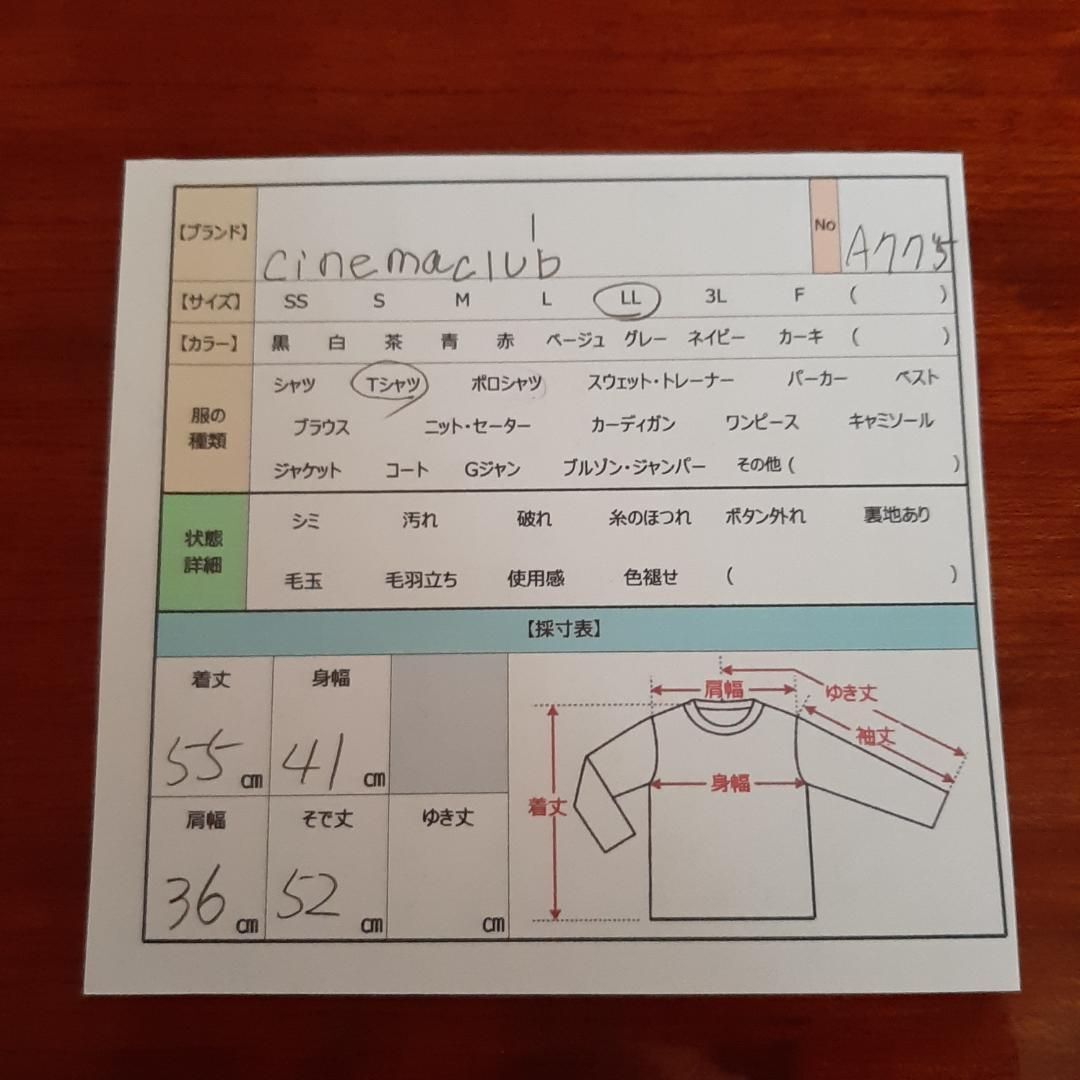 【ブランド】 cinemaclub No A775
【サイズ】 SS S M L LL 3L F ( )
【カラー】 黒 白 茶 青 赤 ベージュ グレー ネイビー カーキ ( )
服の種類
シャツ Tシャツ ポロシャツ スウェット・トレーナー パーカー ベスト
ブラウス ニット・セーター カーディガン ワンピース キャミソール
ジャケット コート Gジャン ブルゾン・ジャンパー その他 ( )
状態詳細
シミ 汚れ 破れ 糸のほつれ ボタン外れ 裏地あり
毛玉 毛羽立ち 使用感 色褪せ ( )
【採寸表】
着丈 身幅
55 cm 41 cm
肩幅 そで丈 ゆき丈
36 cm 52 cm cm
肩幅 ゆき丈
袖丈
身幅
着丈